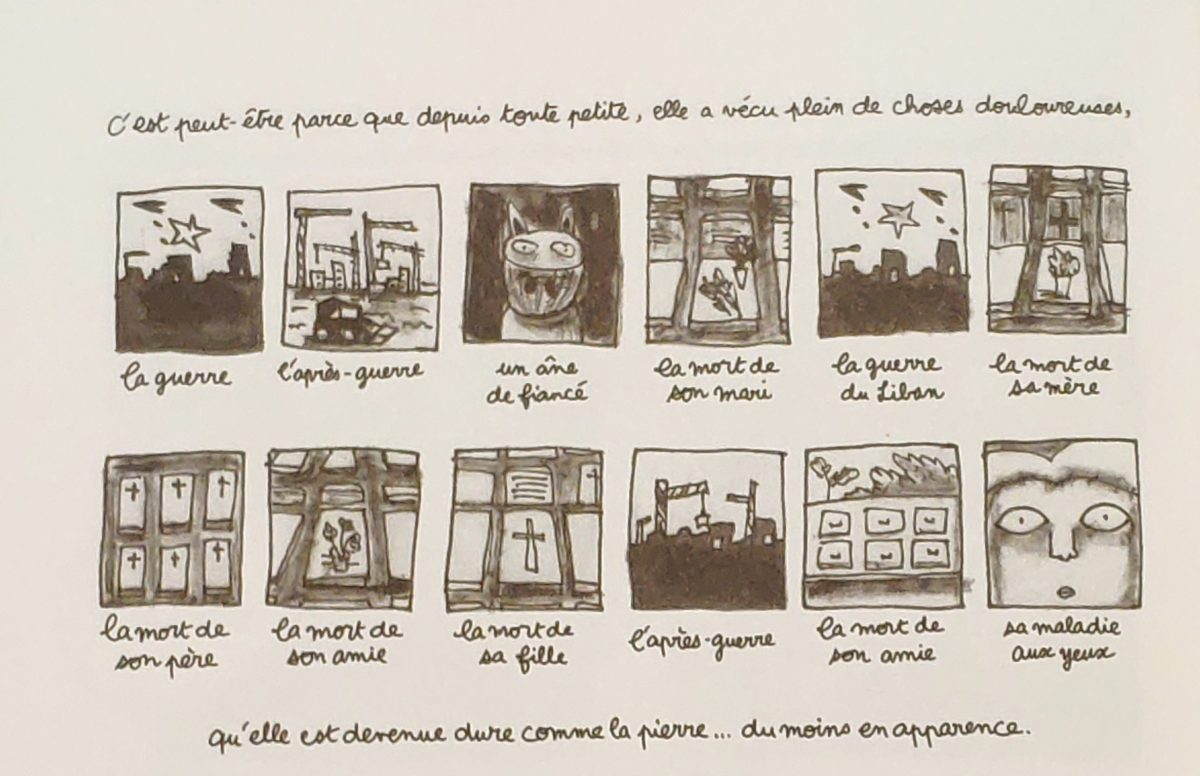 C'est peut-être parce que depuis toute petite, elle a vécu plein de choses douloureuses,
la guerre
l'après-guerre
un âne
de fiancé
la mort de
son mari
la guerre
du Liban
la mort de
sa mère
la mort de
son père
la mort de
son amie
la mort de
sa fille
l'après-guerre
la mort de
son amie
sa maladie
aux yeux
qu'elle est devenue dure comme la pierre... du moins en apparence.